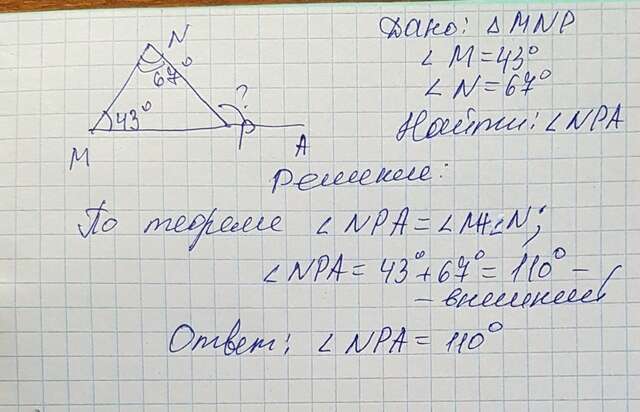 N
67°
43°
?
M
P
A
Дано: △ MNP
∠ M = 43°
∠ N = 67°
Найти: ∠ NPA
Решение:
По теореме ∠ NPA = ∠ M+∠N;
∠ NPA = 43° + 67° = 110° –
– внешний
Ответ: ∠ NPA = 110°